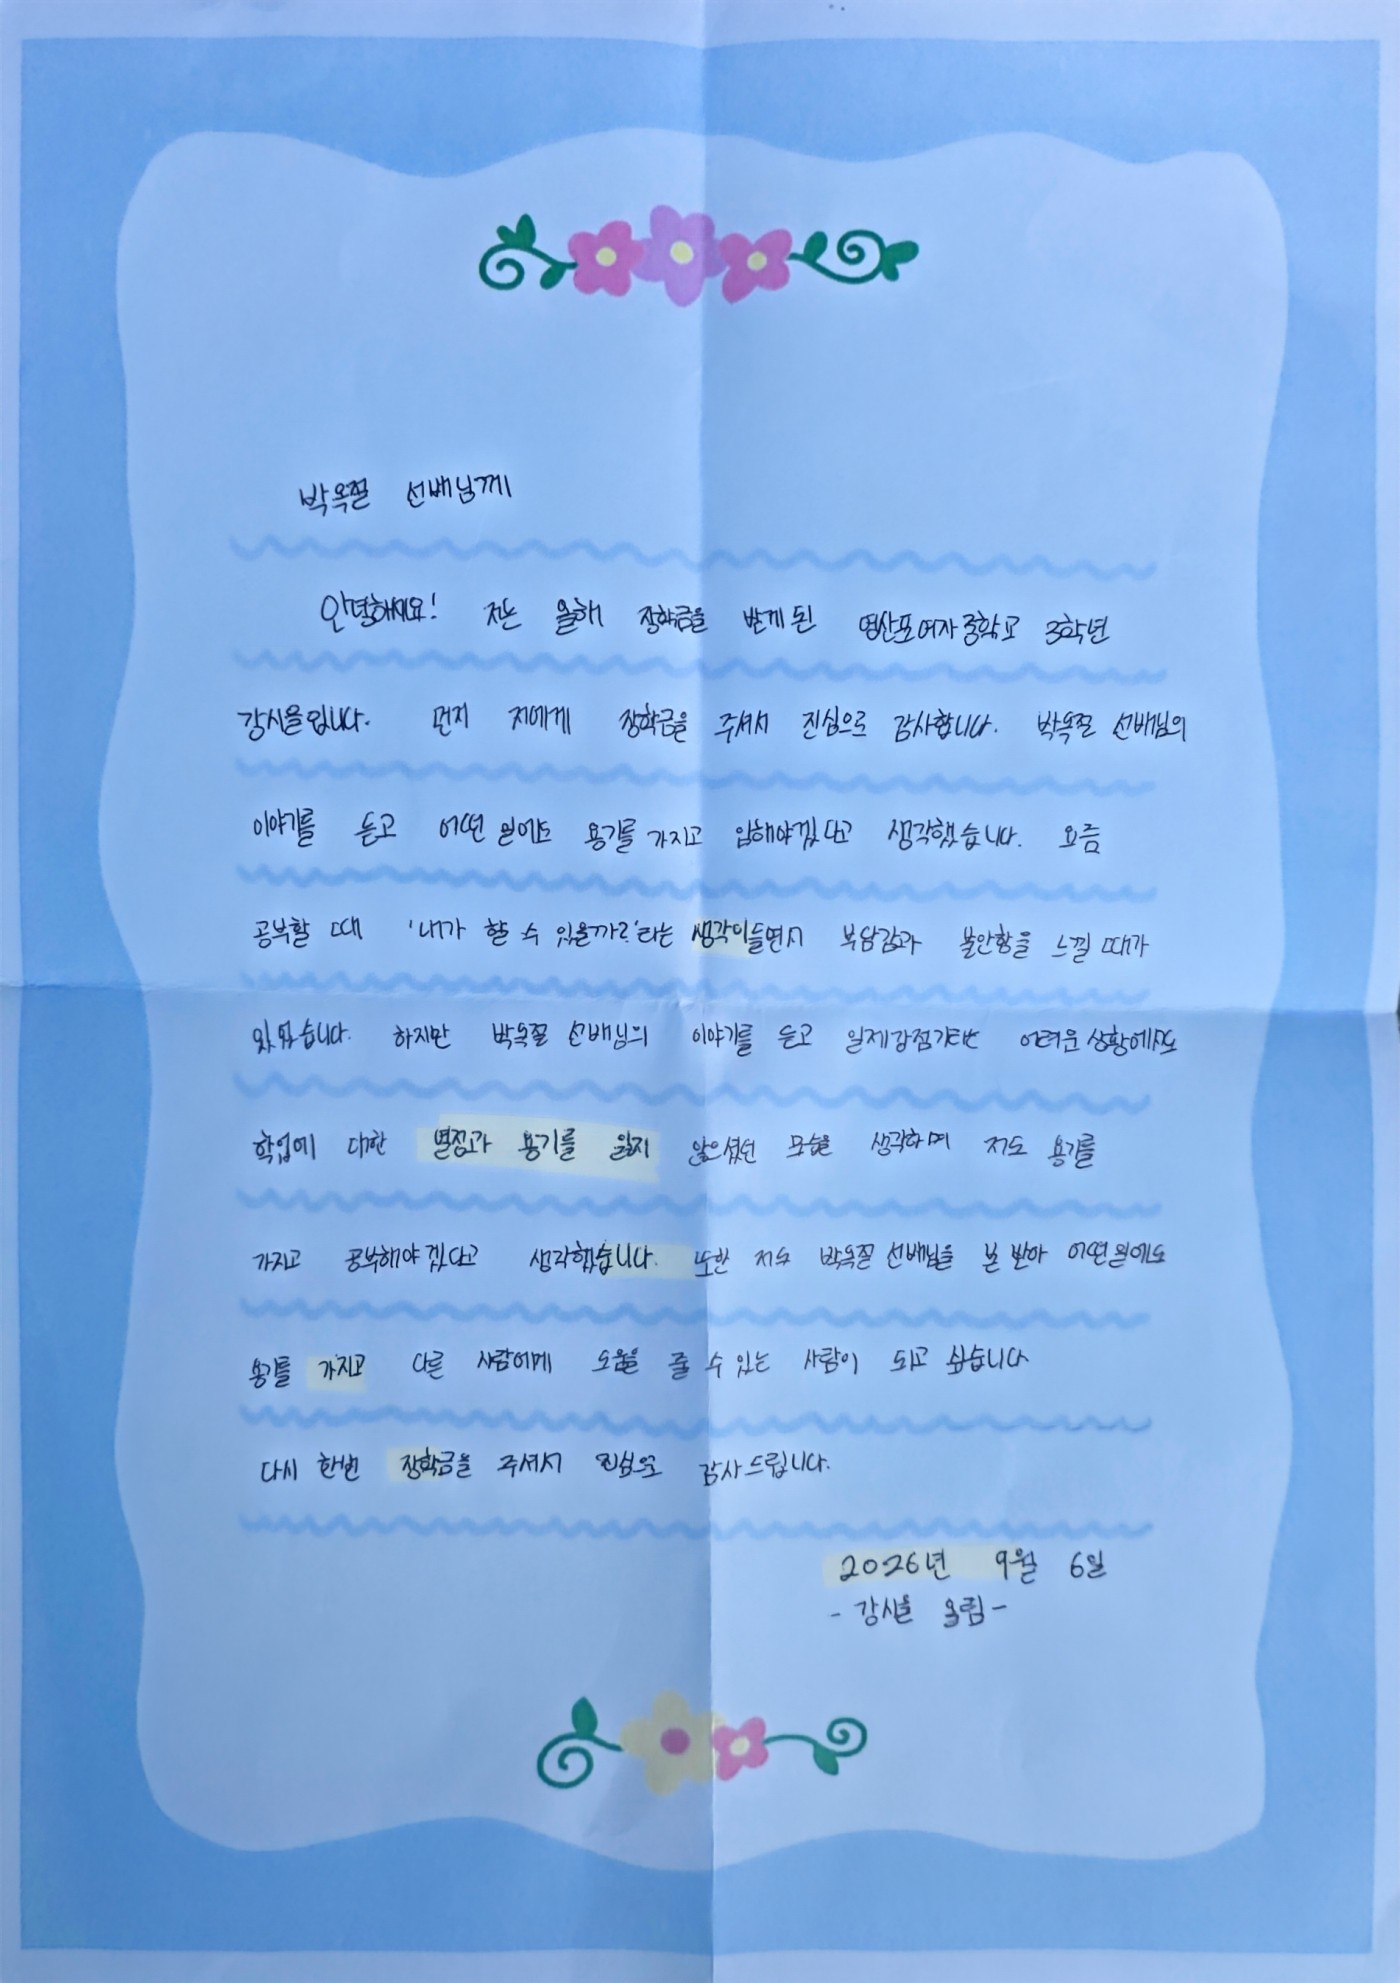 박옥절 선배님께
안녕하세요! 저는 올해 장학금을 받게 된 영산포여자중학교 3학년
강시율입니다. 먼저 저에게 장학금을 주셔서 진심으로 감사합니다. 박옥절 선배님의
이야기를 듣고 어떤 일에도 용기를 가지고 임해야겠다고 생각했습니다. 요즘
공부할 때 '내가 할 수 있을까?'라는 생각이 들면서 부담감과 불안함을 느낄 때가
있었습니다. 하지만 박옥절 선배님의 이야기를 듣고 일제강점기라는 어려운 상황에서도
학업에 대한 열정과 용기를 잃지 않으셨던 모습을 생각하며 저도 용기를
가지고 공부해야겠다고 생각했습니다. 또한 저도 박옥절 선배님을 본받아 어떤 일에도
용기를 가지고 다른 사람에게 도움을 줄 수 있는 사람이 되고 싶습니다
다시 한번 장학금을 주셔서 진심으로 감사드립니다.
2026년 9월 6일
- 강시율 올림 -